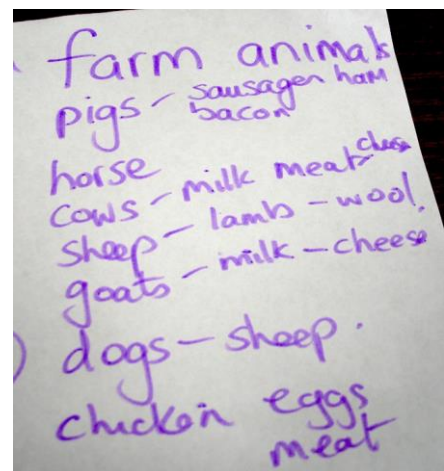 farm animals
pigs - sausages ham
bacon
horse
cows - milk meat cheese
sheep - lamb - wool.
goats - milk - cheese
dogs - sheep.
chicken eggs
meat